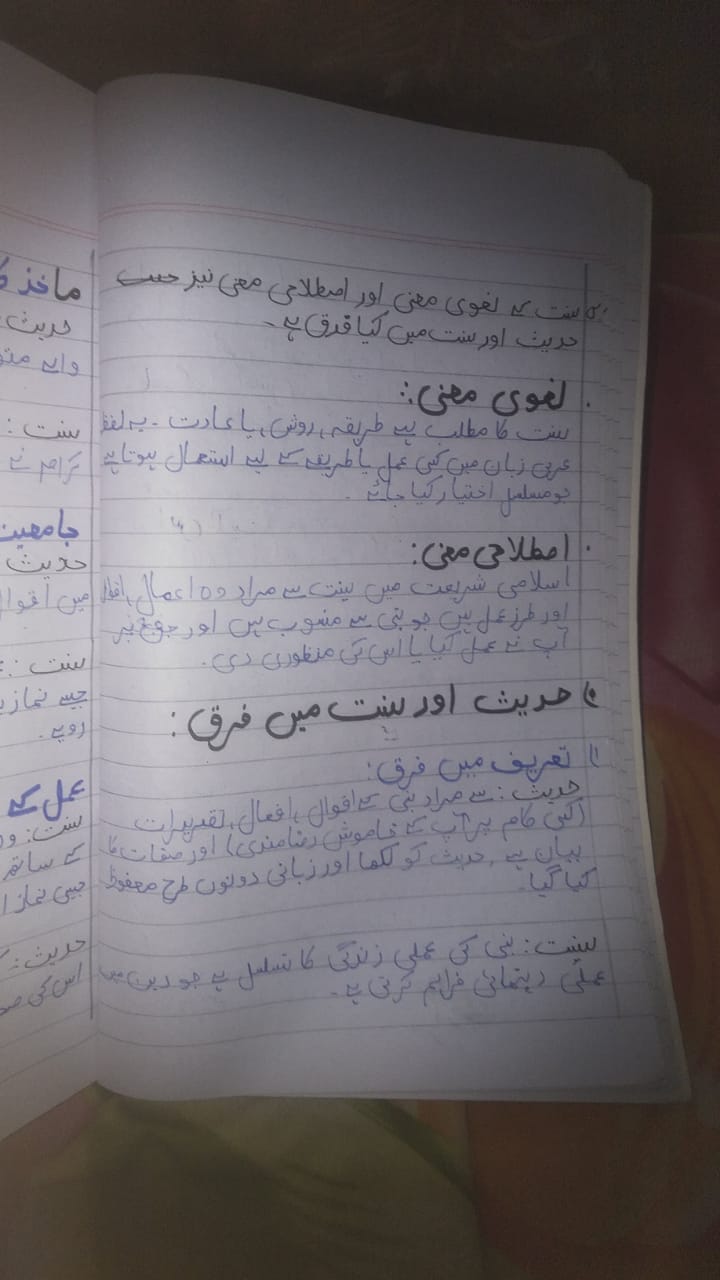 سنت کے لغوی معنی اور اصطلاحی معنی نیز
حدیث اور سنت میں کیا فرق ہے۔
لغوی معنی:
سنت کا مطلب ہے طریقہ، روش، یا عادت۔ یہ لفظ
عربی زبان میں کسی عمل یا طریقہ کے لیے استعمال ہوتا ہے
جو مسلسل اختیار کیا جائے۔
اصطلاحی معنی:
اسلامی شریعت میں سنت سے مراد وہ اعمال، اقوال
اور طرز عمل ہیں جو نبی سے منسوب ہیں اور جو پر
آپ نے عمل کیا یا اس کی منظوری دی۔
حدیث اور سنت میں فرق:
۱) تعریف میں فرق:
حدیث: سے مراد نبی کے اقوال، افعال، تقدیرات
(کسی کام پر آپ کے خاموش رضامندی) اور صفات کا
بیان ہے۔ حدیث کو لکھا اور زبانی دونوں طرح محفوظ
کیا گیا۔
سنت: نبی کی عملی زندگی کا تسلسل ہے جو دین میں
عملی رہنمائی فراہم کرتی ہے۔
ماخذ
حدیث:
والے
سنت:
کرام نے
جامعیت
حدیث
میں اقوال
سنت:
جیسے نماز
رویے۔
عمل کے
سنت:
کے ساتھ
جیسی نماز
حدیث:
اس کی